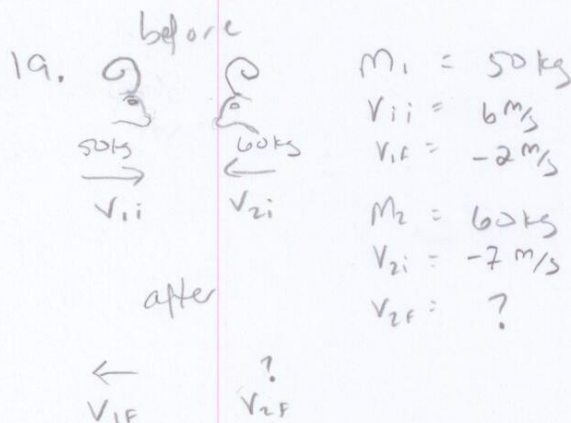 19.
before
50kg
60kg
V1i
V2i
after
?
V1F
V2F
M1 = 50kg
V1i = 6 m/s
V1F = -2 m/s
M2 = 60kg
V2i = -7 m/s
V2F = ?